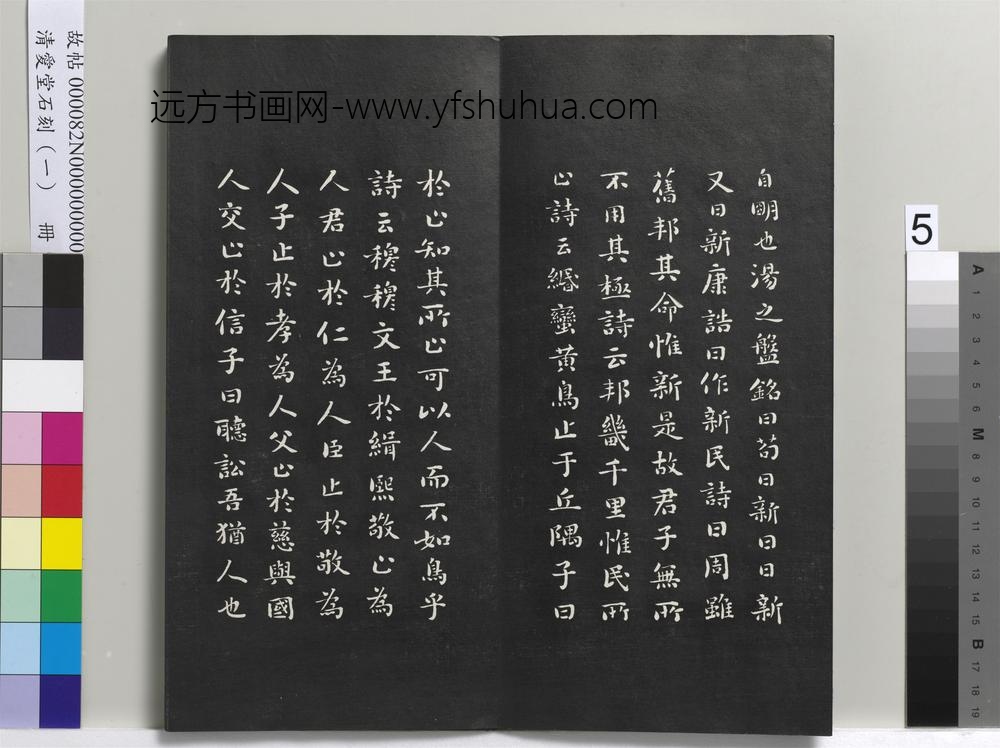 故帖 000082N000000000
清愛堂石刻(一) 冊
远方书画网-www.yfshuhua.com
自明也湯之盤銘曰苟日新日日新
又日新康誥曰作新民詩曰周雖
舊邦其命惟新是故君子無所
不用其極詩云邦畿千里惟民所
止詩云緡蠻黃鳥止于丘隅子曰
於止知其所止可以人而不如鳥乎
詩云穆穆文王於緝熙敬止為
人君止於仁為人臣止於敬為
人子止於孝為人父止於慈與國
人交止於信子曰聽訟吾猶人也
5
A
1
2
3
4
5
6
M
8
9
10
11
12
13
14
15
B
17
18
19